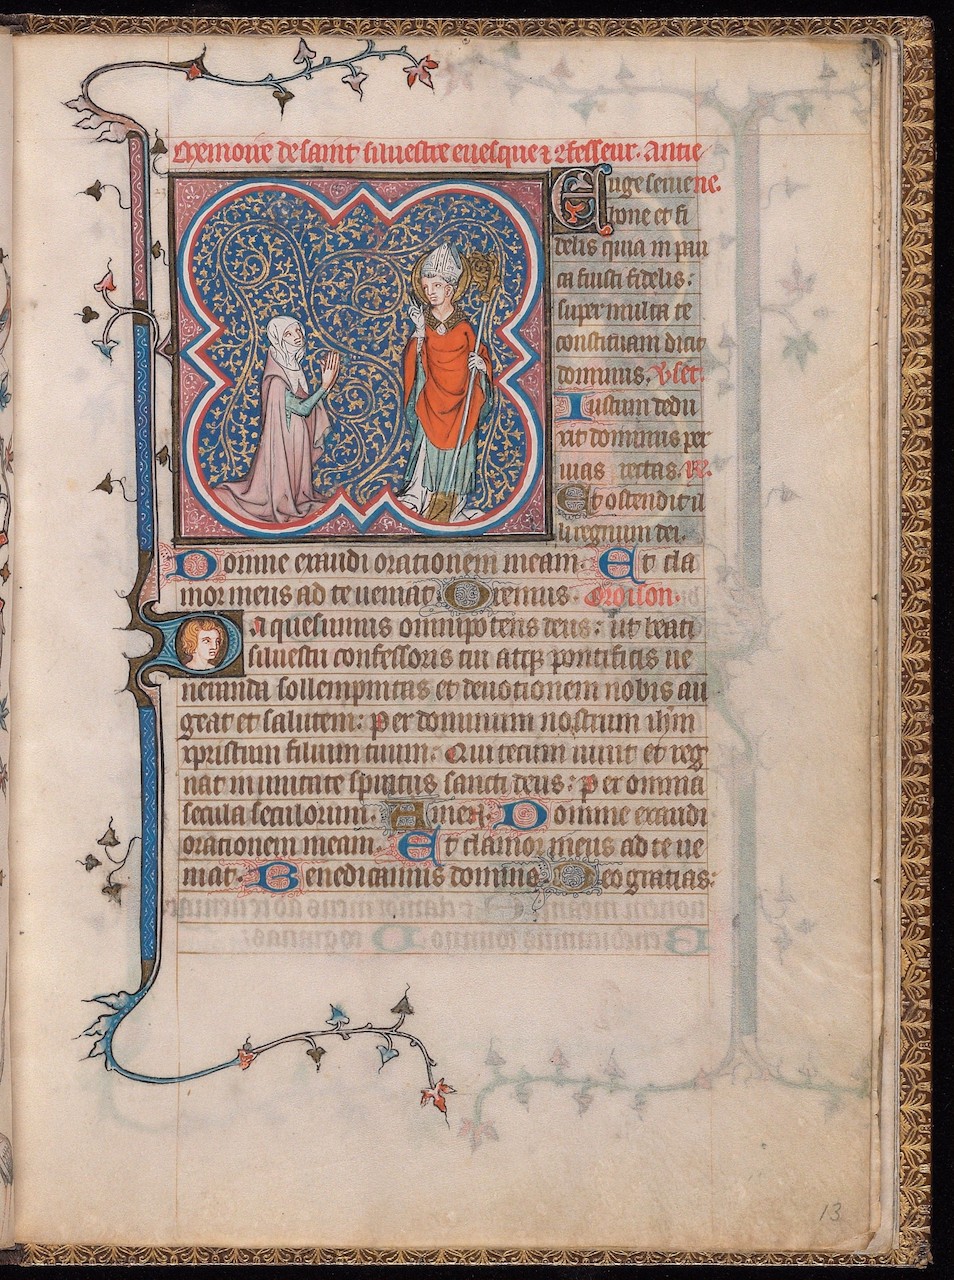 Memoire de saint siluestre euesque ⁊ ꝯfesseur. Antie
Euge serue ne.
bone et fi
delis quia in pau
ca fuisti fidelis:
super multa te
constituam dicit
dominus. Vlet.
Iustum dedu
xit dominus per
uias rectas. R.
Et ostendit il
li regnum dei.
Domine exaudi orationem meam. Et cla
mor meus ad te ueniat. Oremus. Oroison.
Da quesumus omnipotens deus: ut beati
siluestri confessoris tui atqꝫ pontificis ue
neranda sollempnitas et deuotionem nobis au
geat et salutem: Per dominum nostrum ihm
xpristum filium tuum. Qui tecum uiuit et reg
nat in unitate spiritus sancti deus: Per omnia
secula seculorum. Amen. Domine exaudi
orationem meam. Et clamor meus ad te ue
niat. Benedicamus domino. Deo gratias:
13